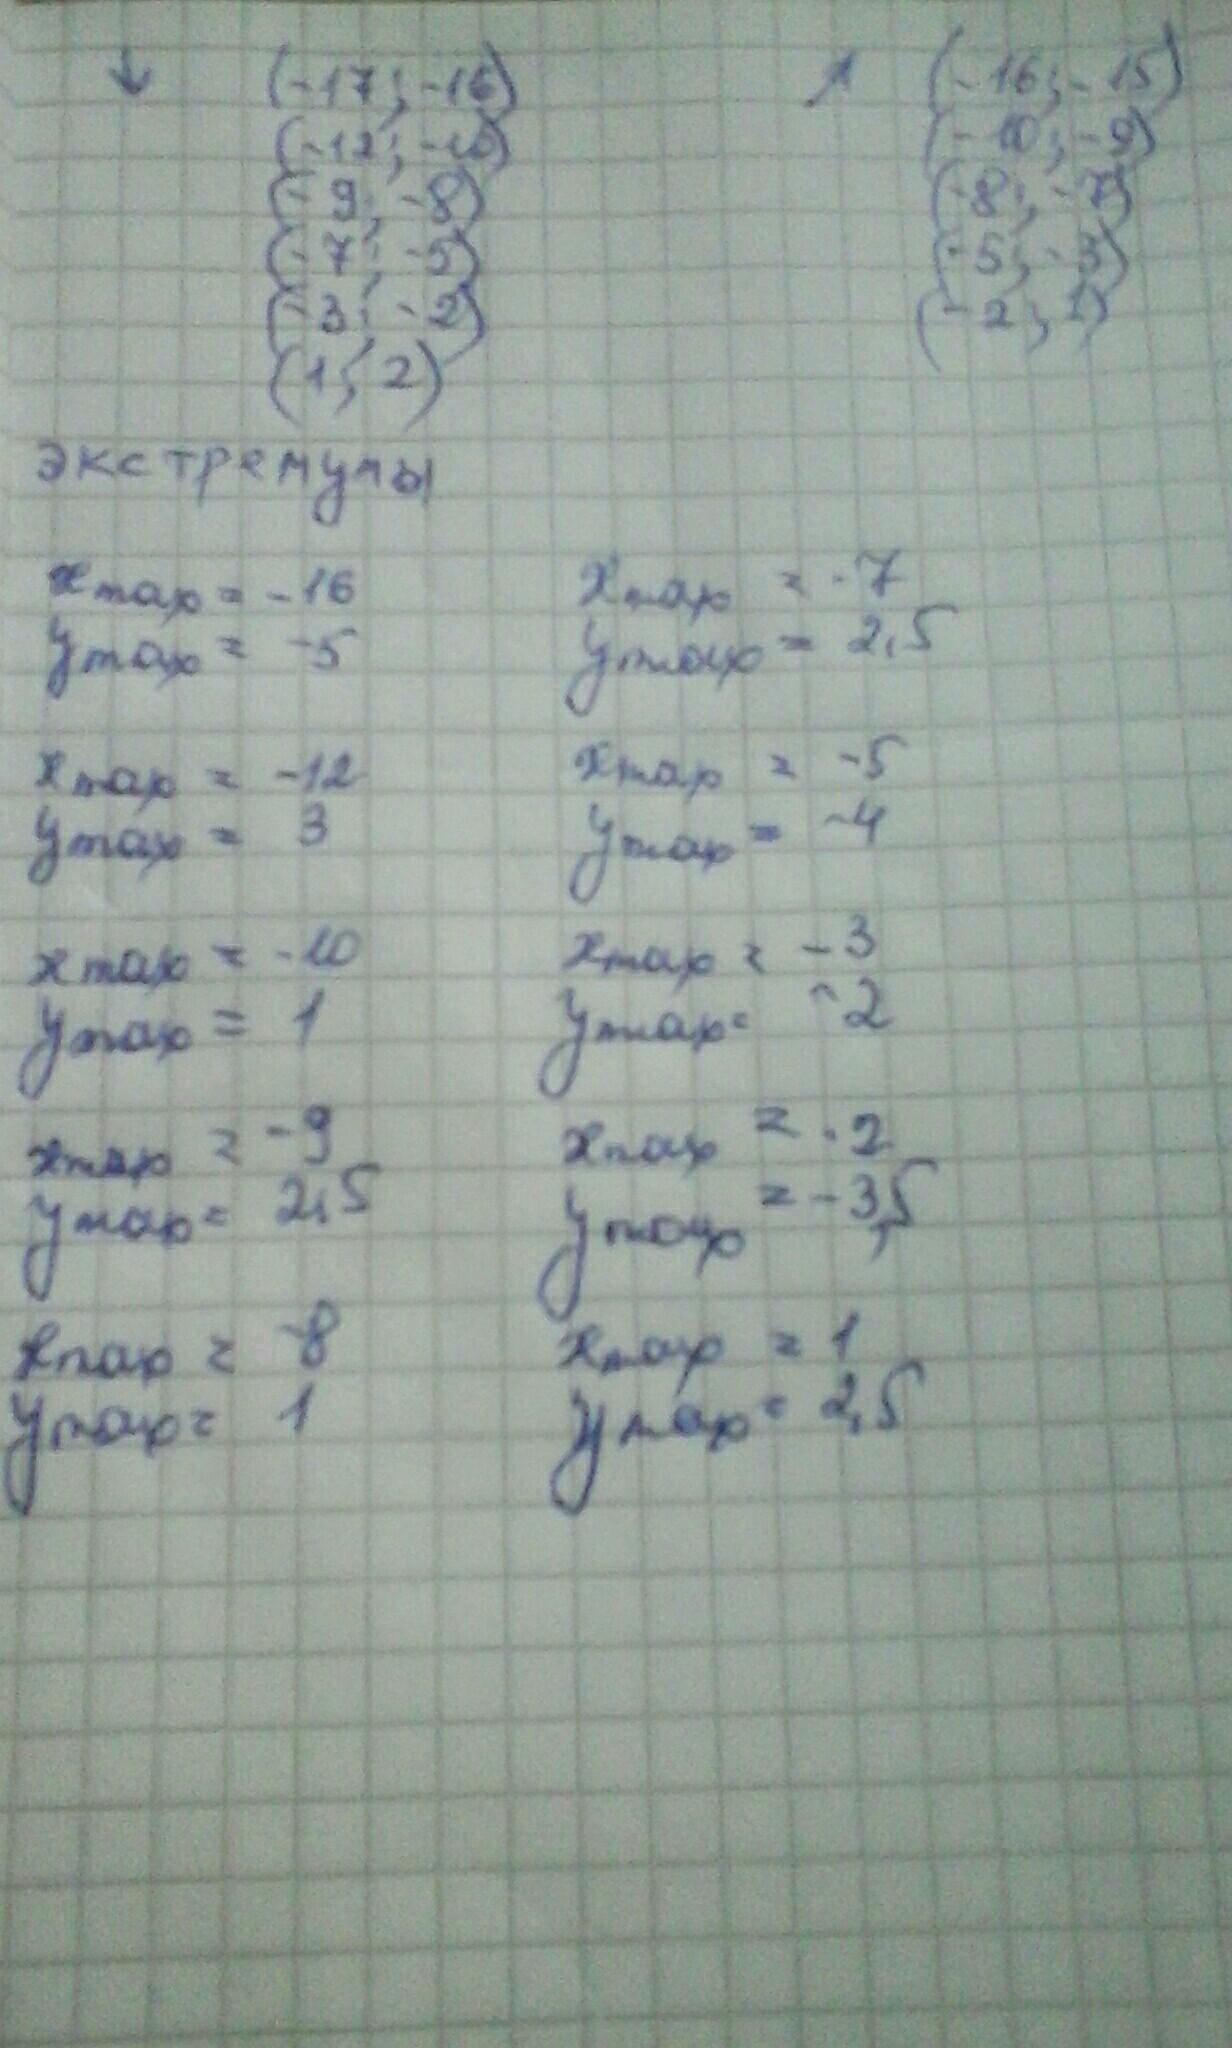 ↓ (-17; -16) ↗ (-16; -15)
(-12; -10) (-10; -9)
(-9; -8) (-8; -7)
(-7; -5) (-5; -3)
(-3; -2) (-2; 1)
(1; 2)
экстремумы
xmax = -16 xmax = -7
ymax = -5 ymax = 2,5
xmax = -12 xmax = -5
ymax = 3 ymax = -4
xmax = -10 xmax = -3
ymax = 1 ymax = -2
xmax = -9 xmax = -2
ymax = 2,5 ymax = -3,5
xmax = -8 xmax = 1
ymax = 1 ymax = 2,5